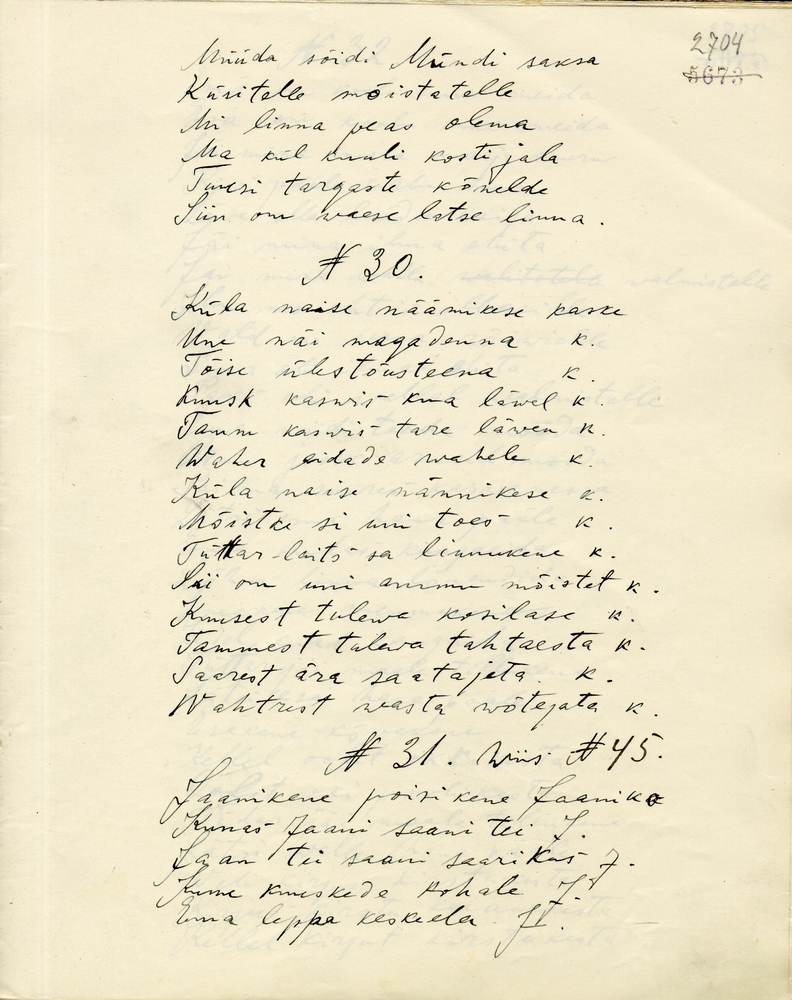 2704
5673
Müüda sõidi Mündi saksa
Küsitelle mõistatelle
Mi linna peas olema
Ma kül kuuli kosti jala
Tuusi targaste kõnelde
Siin om waese latse linna.
№ 30.
Küla naise näämikese kaske
Une näi magadenna k.
Tõise ülestõusteena k.
Kuusk kaswis kua läwel k.
Tamm kaswis tare läwen k.
Waher aidade wahele k.
Küla naise nännikese k.
Mõistke si uni toes k.
Tüttar-laits sa linnukene k.
Sii om uni ammu mõistet k.
Kuusest tulewa kosilase k.
Tammest talewa tahtaesta k.
Saarest ära saatajeta. k.
Wahtrest wasta wõtejata k.
№ 31. Wiis № 45.
Jaanikene poisikene Jaaniko
Kunas Jaani saani tei J.
Jaan tei saani saarikus J.
Kume kuuskede kohale J.
Ema leppa keskela. J.